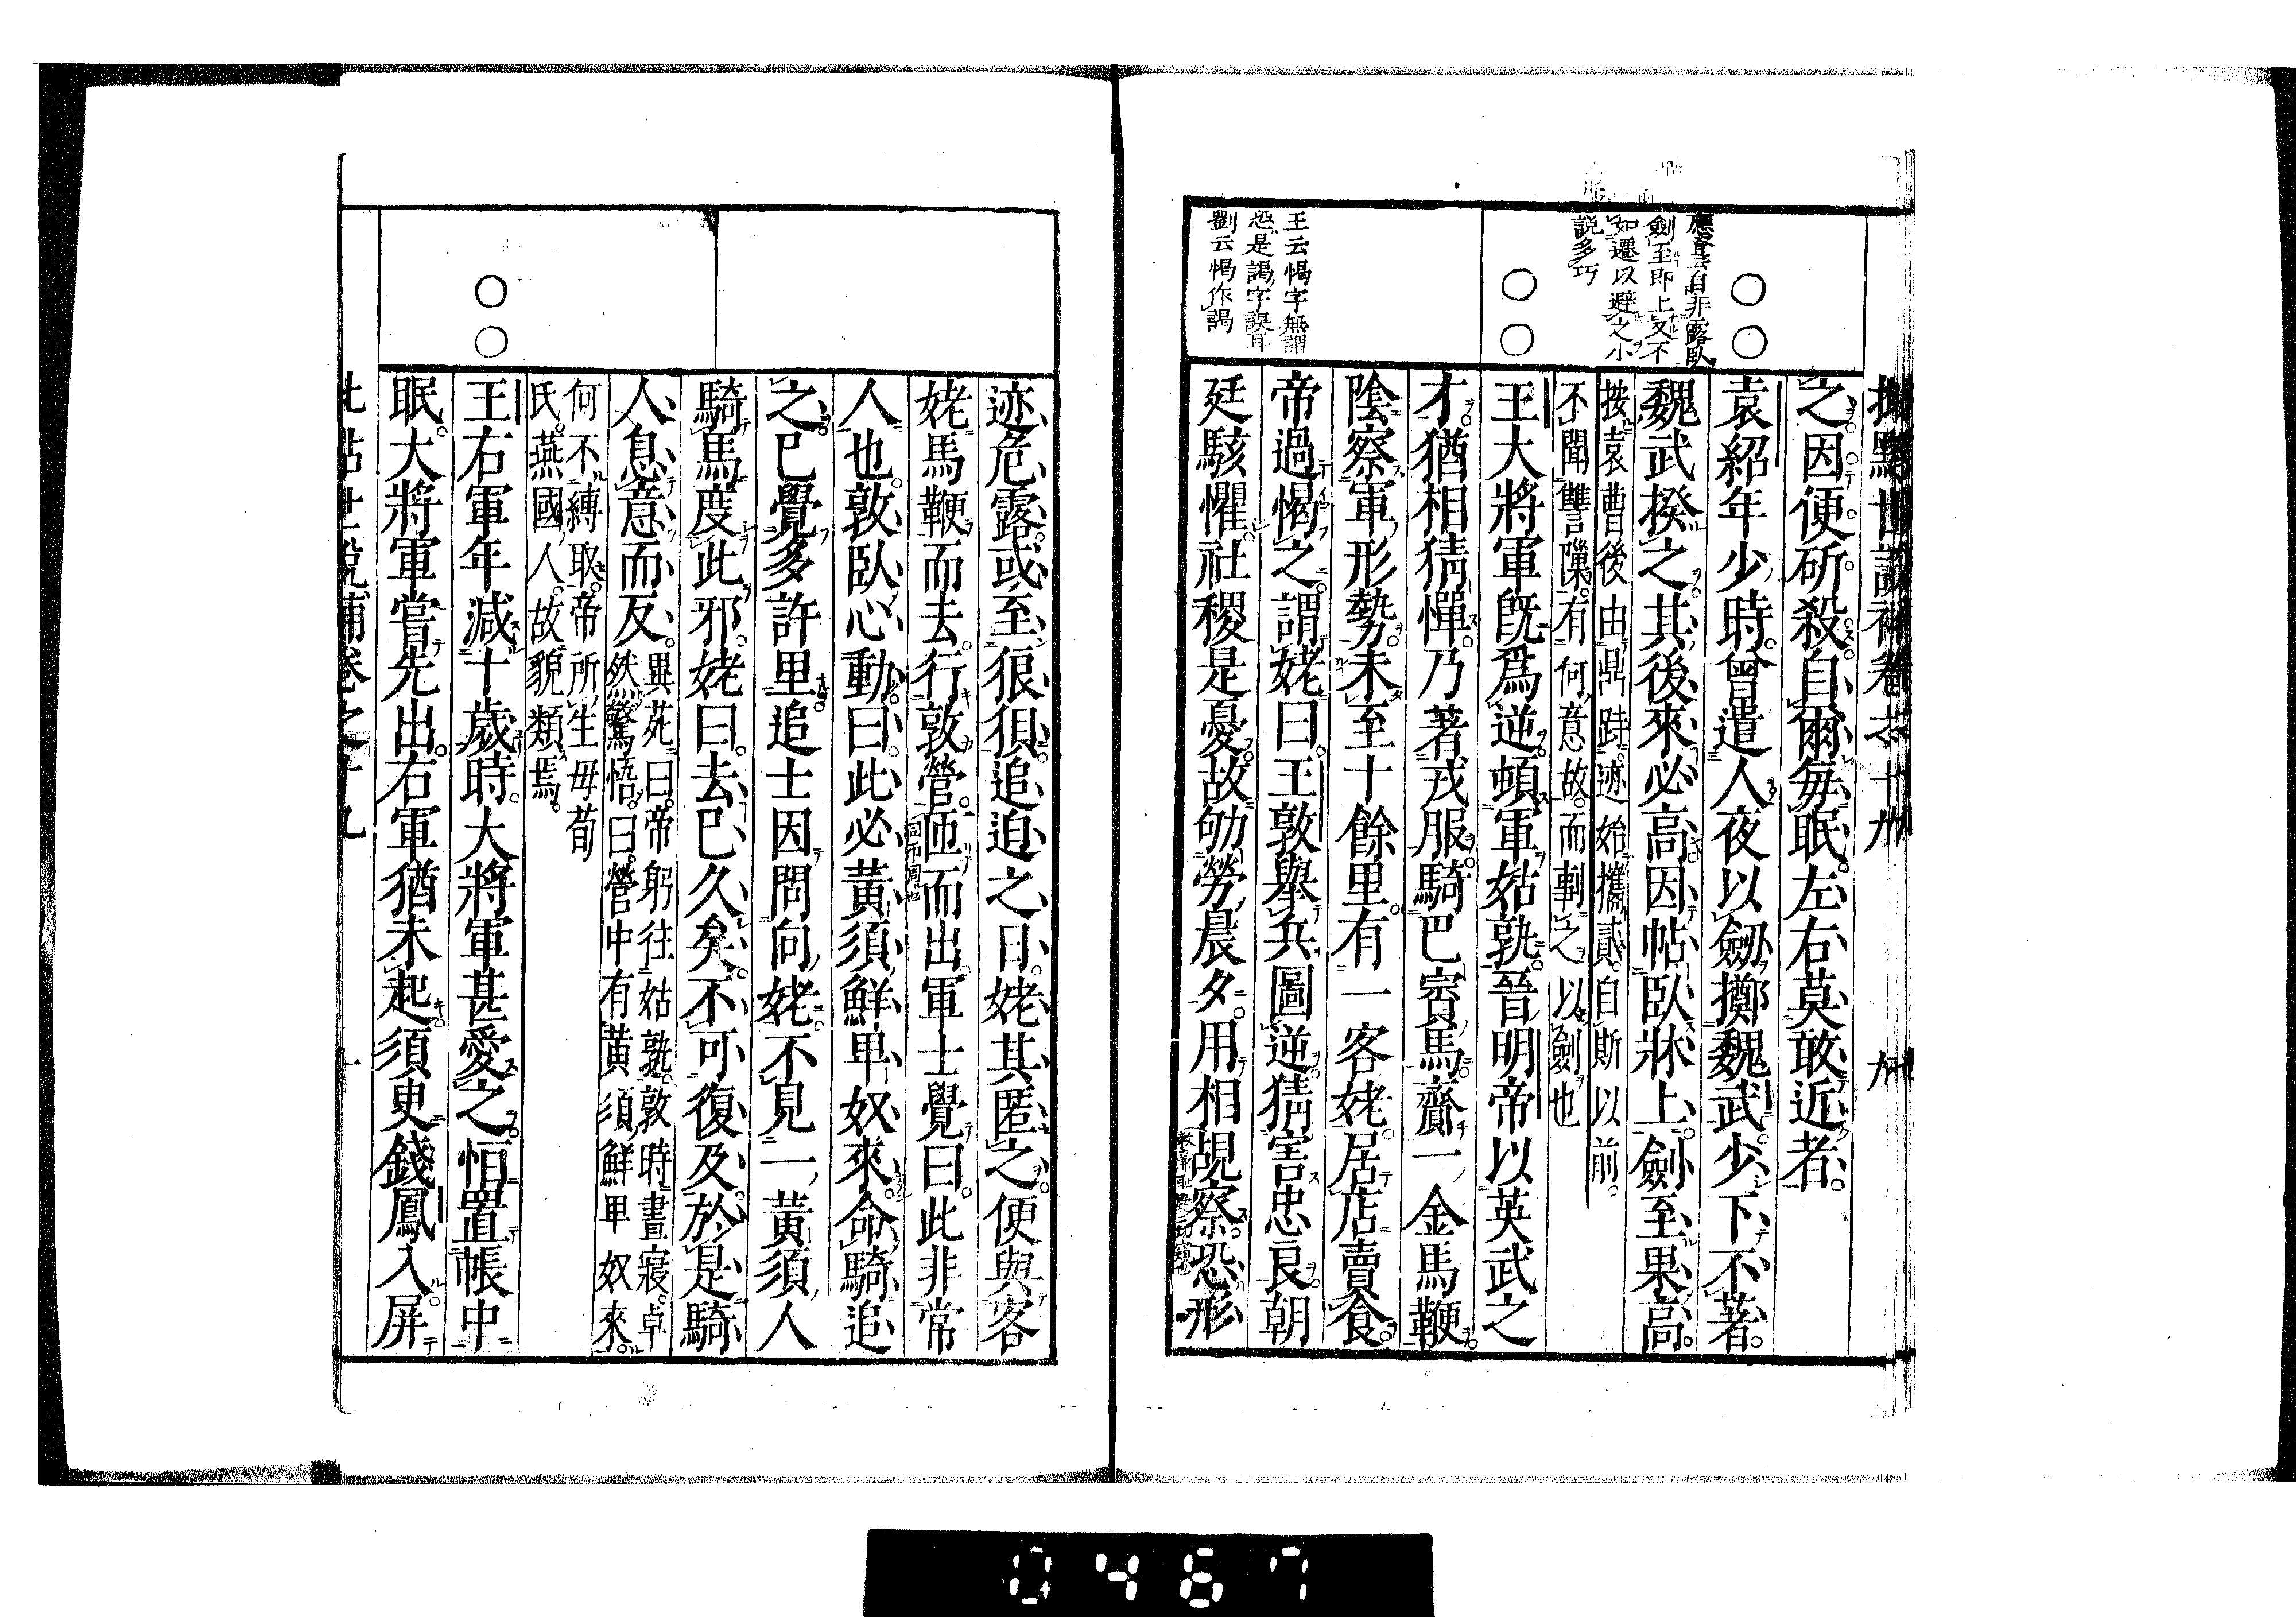 批點世說補卷之十九 九
應登云自非露臥
劒至即上又不
如遷以避之小
說多巧
王云愒字無謂
恐是謁字誤耳
劉云愒作謁
之因便斫殺自爾每眠左右莫敢近者
袁紹年少時曾遣人夜以劒擲魏武少下不著
魏武揆之其後來必高因帖臥牀上劍至果高
按袁曹後由鼎跱迹始攜貳自斯以前
不聞讐隟有何意故而剚之以劍也
王大將軍旣爲逆頓軍姑孰晉明帝以英武之
才猶相猜憚乃著戎服騎巴賨馬齎一金馬鞭
陰察軍形勢未至十餘里有一客姥居店賣食
帝過愒之謂姥曰王敦舉兵圖逆猜害忠良朝
廷駭懼社稷是憂故劬勞晨夕用相覘察恐形
迹危露或至狼狽追迫之日姥其匿之便與客
姥馬鞭而去行敦營匝而出軍士覺曰此非常
人也敦臥心動曰此必黃須鮮卑奴來命騎追
之已覺多許里追士因問向姥不見一黃須人
騎馬度此邪姥曰去已久矣不可復及於是騎
人息意而反
異苑曰帝躬往姑孰敦時晝寢卓
然驚悟曰營中有黃須鮮卑奴來
何不縛取帝所生母荀
氏燕國人故貌類焉
王右軍年減十歲時大將軍甚愛之恒置帳中
眠大將軍嘗先出右軍猶未起須臾錢鳳入屏
批點世說補卷之十九 十
0467